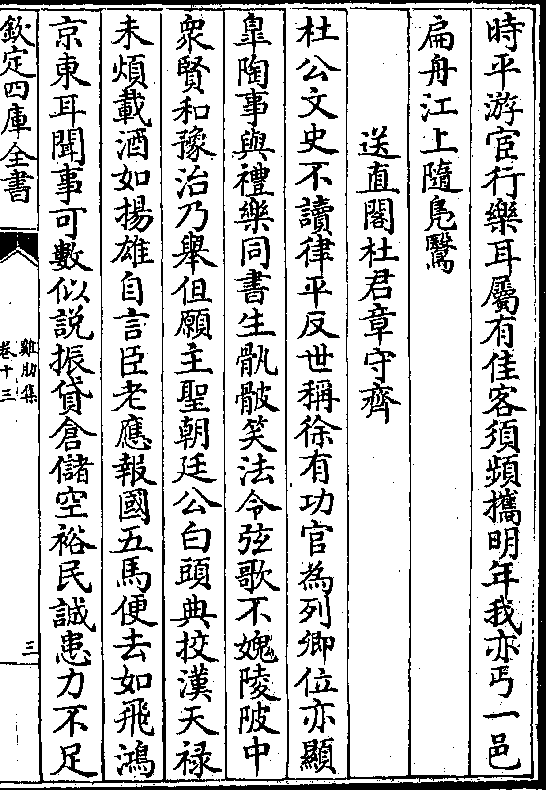 時平游宦行樂耳屬有佳客須頻攜明年我亦丐一邑
扁舟江上隨鳧鷖
送直閣杜君章守齊
杜公文史不讀律平反世稱徐有功官為列卿位亦顯
臯陶事與禮樂同書生骫骳笑法令弦歌不媿陵陂中
衆賢和豫治乃舉但願主聖朝廷公白頭典挍漢天祿
未煩載酒如揚雄自言臣老應報國五馬便去如飛鴻
京東耳聞事可數似說振貸倉儲空裕民誠患力不足
欽定四庫全書
雞肋集
卷十三
三